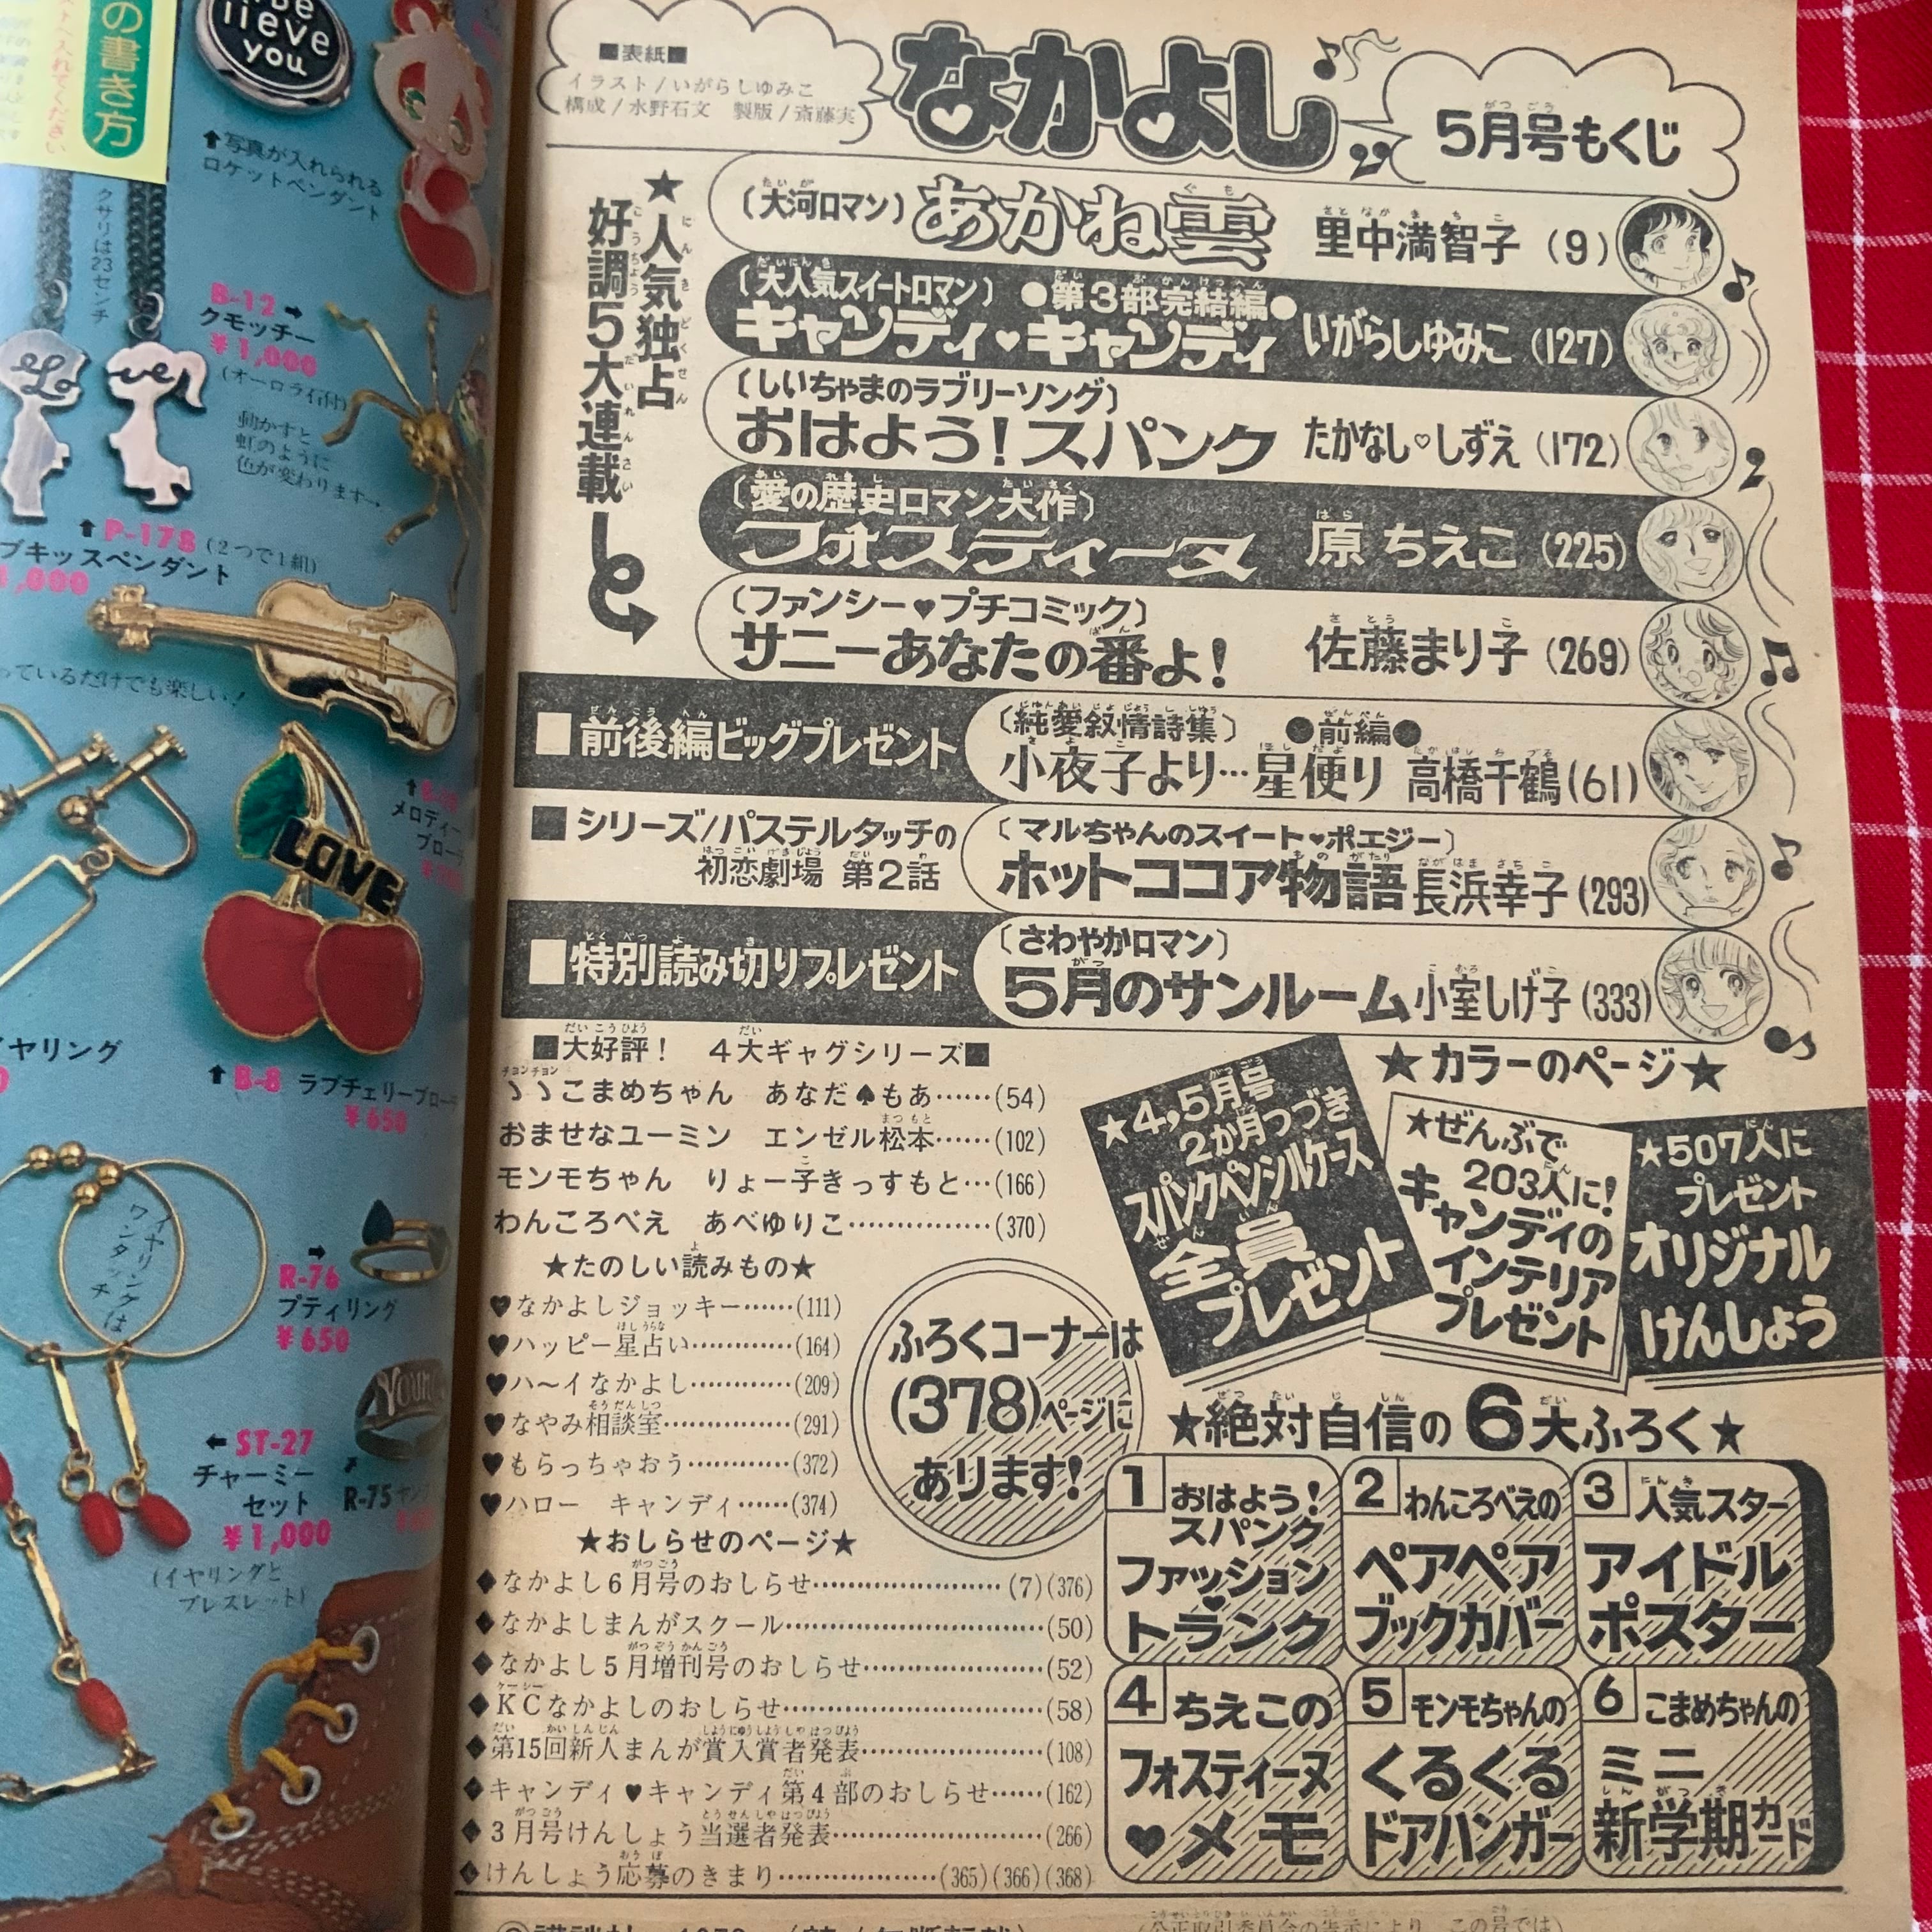 の書き方
lieve
you
↑写真が入れられる
ロケットペンダント
クサリは23センチ
B-12→
クモッチー
¥1,000
(オーロラ石付)
動かすと
虹のように
色が変わります→
↑P-178(2つで1組)
ブキッスペンダント
1,000
っているだけでも楽しい!
メロディー
LOVE
ヤリング
↑B-8 ラブチェリーブロー
¥650
イヤリングは
ワンタッチ
→
R-76
プティリング
¥650
←ST-27
チャーミー
セット
¥1,000
(イヤリングと
ブレスレット)
R-75
■表紙■
イラスト/いがらしゆみこ
構成/水野石文 製版/斎藤実
なかよし
5月号もくじ
★人気独占
好調5大連載
〔大河ロマン〕あかね雲 里中満智子 (9)
〔大人気スイートロマン〕 ●第3部完結編●
キャンディ♥キャンディ いがらしゆみこ (127)
〔しいちゃまのラブリーソング〕
おはよう!スパンク たかなし♡しずえ (172)
〔愛の歴史ロマン大作〕
フォスティーヌ 原ちえこ (225)
〔ファンシー♥プチコミック〕
サニーあなたの番よ! 佐藤まり子 (269)
■前後編ビッグプレゼント
〔純愛叙情詩集〕 ●前編●
小夜子より…星便り 高橋千鶴 (61)
■シリーズ/パステルタッチの
初恋劇場 第2話
〔マルちゃんのスイート♥ポエジー〕
ホットココア物語 長浜幸子 (293)
■特別読み切りプレゼント
〔さわやかロマン〕
5月のサンルーム 小室しげ子 (333)
■大好評! 4大ギャグシリーズ■
ヽヽこまめちゃん あなだ♠もあ……(54)
おませなユーミン エンゼル松本……(102)
モンモちゃん りょー子きっすもと…(166)
わんころべえ あべゆりこ……………(370)
★たのしい読みもの★
♥なかよしジョッキー……(111)
♥ハッピー星占い…………(164)
♥ハ〜イなかよし…………(209)
♥なやみ相談室……………(291)
♥もらっちゃおう…………(372)
♥ハロー キャンディ……(374)
ふろくコーナーは
(378)ページに
あります!
★おしらせのページ★
◆なかよし6月号のおしらせ………………(7)(376)
◆なかよしまんがスクール……………………(50)
◆なかよし5月増刊号のおしらせ……………(52)
◆KCなかよしのおしらせ……………………(58)
◆第15回新人まんが賞入賞者発表……………(108)
◆キャンディ♥キャンディ第4部のおしらせ……(162)
◆3月号けんしょう当選者発表………………(266)
◆けんしょう応募のきまり……………(365)(366)(368)
★カラーのページ★
★4,5月号
2か月つづき
スパンクペンシルケース
全員
プレゼント
★ぜんぶで
203人に!
キャンディの
インテリア
プレゼント
★507人に
プレゼント
オリジナル
けんしょう
★絶対自信の6大ふろく★
1 おはよう!
スパンク
ファッション
トランク
2 わんころべえの
ペアペア
ブックカバー
3 人気スター
アイドル
ポスター
4 ちえこの
フォスティーヌ
♥メモ
5 モンモちゃんの
くるくる
ドアハンガー
6 こまめちゃんの
ミニ
新学期カード